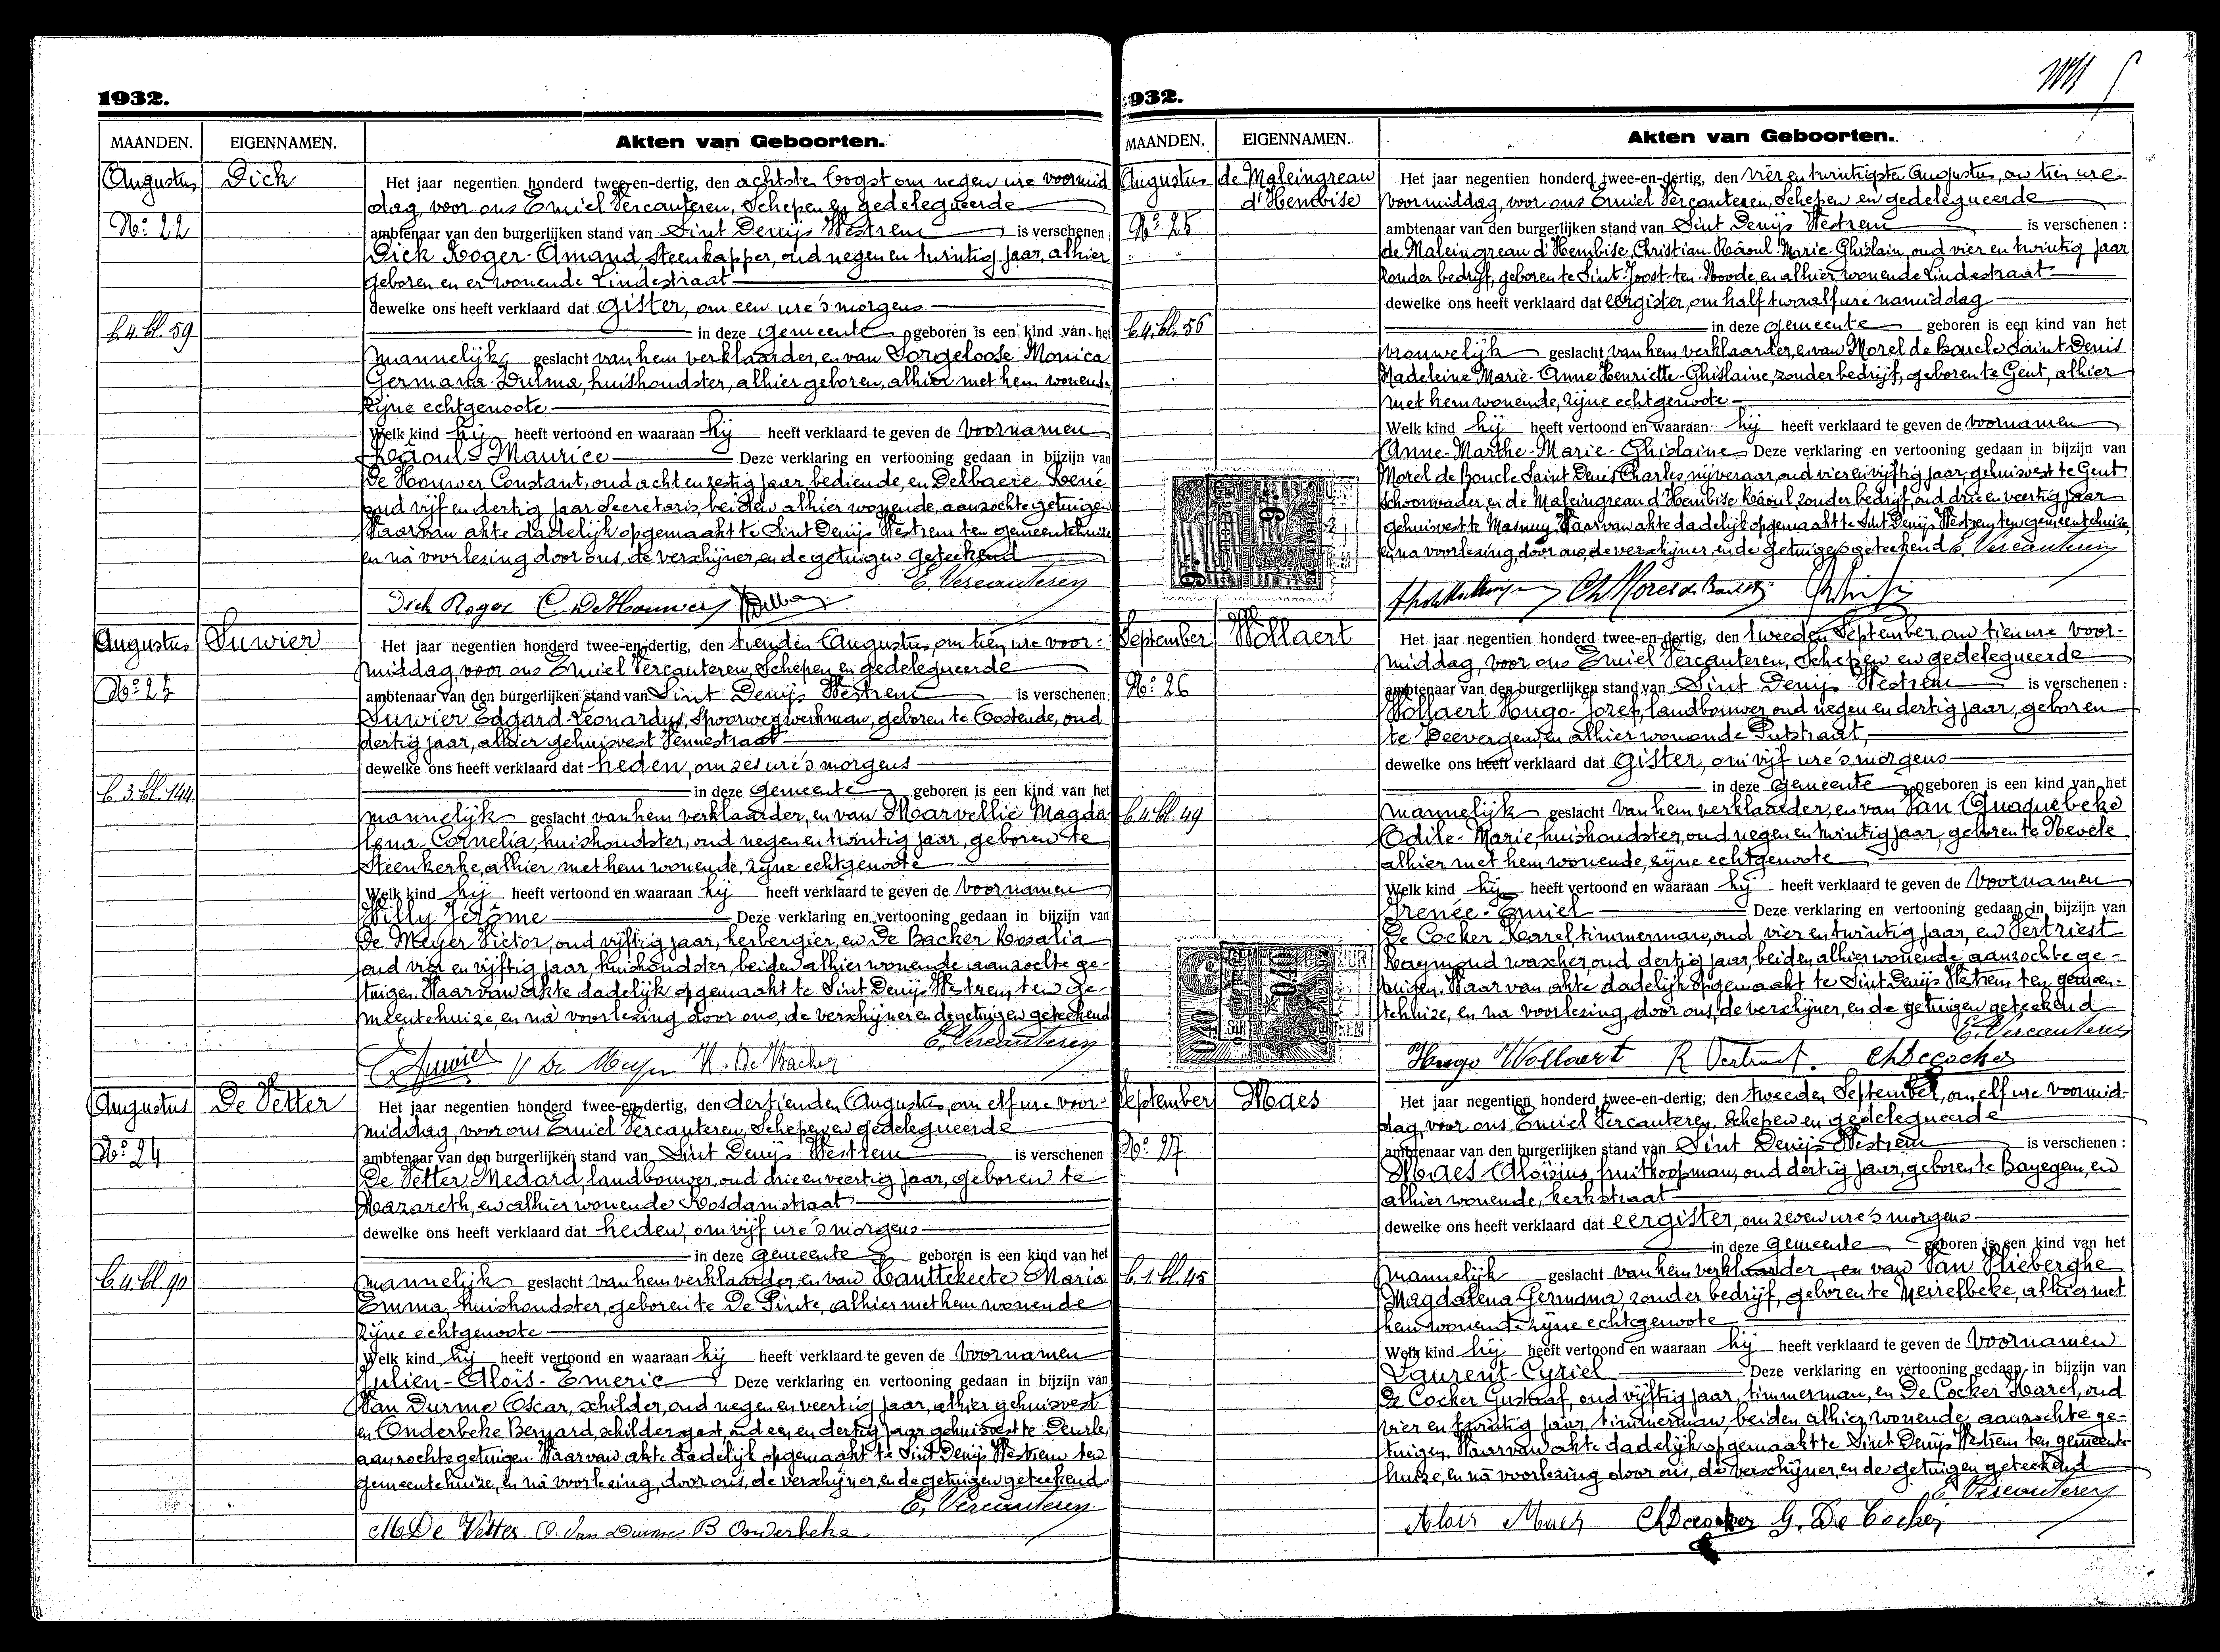 1932.
MAANDEN. EIGENNAMEN. Akten van Geboorten.
Augustus Dick
Nº: 22
b.4.bl.59
Het jaar negentien honderd twee-en-dertig, den achtsten Oogst om negen ure voormid
dag, voor ons Emiel Vercauteren, Schepen en gedelegueerde
ambtenaar van den burgerlijken stand van Sint Denijs Westrem is verschenen:
Dick Roger-Amand, Steenkapper, oud negen en twintig jaar, alhier
geboren en er wonende Lindestraat
dewelke ons heeft verklaard dat gister, om een ure 's morgens
in deze gemeente geboren is een kind van het
mannelijk geslacht van hem verklaarder, en van Sorgeloose Monica
Germana-Dulma, huishoudster, alhier geboren, alhier met hem wonende,
zijne echtgenoote
Welk kind hij heeft vertoond en waaraan hij heeft verklaard te geven de voornamen
Raoul-Maurice Deze verklaring en vertooning gedaan in bijzijn van
De Houwer Constant, oud acht en zestig jaar, bediende, en Delbaere René
oud vijf en dertig jaar Secretaris, beiden alhier wonende, aanzochte getuigen
Waarvan akte dadelijk opgemaakt te Sint Denijs Westrem ten gemeentehuize
en na voorlezing door ons, de verschijner en de getuigen geteekend
E. Vercauteren
Dick Roger C. De Houwer
Augustus Suwier
Nº: 23
b.3.bl.144
Het jaar negentien honderd twee-en-dertig, den tienden Augustus, om tien ure voor-
middag, voor ons Emiel Vercauteren, Schepen en gedelegueerde
ambtenaar van den burgerlijken stand van Sint Denijs Westrem is verschenen:
Suwier Edgard-Leonardus, Spoorwegwerkman, geboren te Oostende, oud
dertig jaar, alhier gehuisvest Vennestraat
dewelke ons heeft verklaard dat heden, om zes ure 's morgens
in deze gemeente geboren is een kind van het
mannelijk geslacht van hem verklaarder, en van Marvellie Magda-
lena-Cornelia, huishoudster, oud negen en twintig jaar, geboren te
Steenkerke, alhier met hem wonende, zijne echtgenoote
Welk kind hij heeft vertoond en waaraan hij heeft verklaard te geven de voornamen
Willy Jerôme Deze verklaring en vertooning gedaan in bijzijn van
De Meyer Victor, oud vijftig jaar, herbergier, en De Backer Rosalia
oud vier en vijftig jaar, huishoudster, beiden alhier wonende aanzochte ge-
tuigen. Waarvan akte dadelijk opgemaakt te Sint Denijs Westrem, ten ge-
meentehuize, en na voorlezing door ons, de verschijner en de getuigen geteekend
E. Vercauteren
E Suwier V De Meyer R. De Backer
Augustus De Vetter
Nº: 24
b.4.bl.90
Het jaar negentien honderd twee-en-dertig, den dertienden Augustus, om elf ure voor-
middag, voor ons Emiel Vercauteren, Schepen en gedelegueerde
ambtenaar van den burgerlijken stand van Sint Denijs Westrem is verschenen
De Vetter Medard, landbouwer, oud drie en veertig jaar, geboren te
Nazareth, en alhier wonende Rosdamstraat
dewelke ons heeft verklaard dat heden, om vijf ure 's morgens
in deze gemeente geboren is een kind van het
mannelijk geslacht van hem verklaarder, en van Hauttekeete Maria
Emma, huishoudster, geboren te De Pinte, alhier met hem wonende
zijne echtgenoote
Welk kind hij heeft vertoond en waaraan hij heeft verklaard te geven de voornamen
Julien-Aloïs-Emeric Deze verklaring en vertooning gedaan in bijzijn van
Van Durme Oscar, schilder, oud negen en veertig jaar, alhier gehuisvest
en Onderbeke Bernard, schildersgast, oud een en dertig jaar gehuisvest te Deurle,
aanzochte getuigen. Waarvan akte dadelijk opgemaakt te Sint Denijs Westrem ten
gemeentehuize, en na voorlezing, door ons, de verschijner, en de getuigen geteekend
E. Vercauteren
M De Vetter O. Van Durme B Onderbeke
932.
MAANDEN. EIGENNAMEN. Akten van Geboorten.
Augustus de Maleingreau
d'Hembise
Nº: 25
b.4.bl.56
Het jaar negentien honderd twee-en-dertig, den vier en twintigsten Augustus, om tien ure
voormiddag, voor ons Emiel Vercauteren, Schepen en gedelegueerde
ambtenaar van den burgerlijken stand van Sint Denijs Westrem is verschenen:
de Maleingreau d'Hembise, Christian-Raoul-Marie-Ghislain, oud vier en twintig jaar
zonder bedrijf, geboren te Sint-Joost-ten-Noode, en alhier wonende Lindestraat
dewelke ons heeft verklaard dat eergister, om half twaalf ure namiddag
in deze gemeente geboren is een kind van het
vrouwelijk geslacht van hem verklaarder, en van Morel de Boucle Saint Denis
Madeleine Marie-Anne Henriette-Ghislaine, zonder bedrijf, geboren te Gent, alhier
met hem wonende, zijne echtgenoote
Welk kind hij heeft vertoond en waaraan hij heeft verklaard te geven de voornamen
Anne-Marthe-Marie-Ghislaine Deze verklaring en vertooning gedaan in bijzijn van
Morel de Boucle Saint Denis Charles, nijveraar, oud vier en vijftig jaar, gehuisvest te Gent
schoonvader, en de Maleingreau d'Hembise Raoul, zonder bedrijf, oud drie en veertig jaar
gehuisvest te Masnuy. Waarvan akte dadelijk opgemaakt te Sint Denijs Westrem ten gemeentehuize,
en na voorlezing, door ons, de verschijner en de getuigen geteekend E. Vercauteren
September Wollaert
Nº: 26
b.4.bl.49
Het jaar negentien honderd twee-en-dertig, den tweeden September, om tien ure voor-
middag, voor ons Emiel Vercauteren, Schepen en gedelegueerde
ambtenaar van den burgerlijken stand van Sint Denijs Westrem is verschenen:
Wollaert Hugo-Jozef, landbouwer, oud negen en dertig jaar, geboren
te Beevergem, en alhier wonende Putstraat,
dewelke ons heeft verklaard dat gister, om vijf ure 's morgens
in deze gemeente geboren is een kind van het
mannelijk geslacht van hem verklaarder, en van Van Quaquebeke
Odile-Marie, huishoudster, oud negen en twintig jaar, geboren te Nevele
alhier met hem wonende, zijne echtgenoote
Welk kind hij heeft vertoond en waaraan hij heeft verklaard te geven de voornamen
Irenée-Emiel Deze verklaring en vertooning gedaan in bijzijn van
De Cocker Karel timmerman, oud vier en twintig jaar, en Vertriest
Raymond wascher, oud dertig jaar, beiden alhier wonende, aanzochte ge-
tuigen. Waarvan akte dadelijk opgemaakt te Sint Denijs Westrem ten gemeen-
tehuize, en na voorlezing, door ons, de verschijner, en de getuigen geteekend
E. Vercauteren
Hugo Wollaert R Vertriest. Ch Decocker
September Maes
Nº: 27
b.1.bl.45
Het jaar negentien honderd twee-en-dertig, den tweeden September, om elf ure voormid-
dag, voor ons Emiel Vercauteren, Schepen en gedelegueerde
ambtenaar van den burgerlijken stand van Sint Denijs Westrem is verschenen:
Maes Aloïsius, fruitkoopman, oud dertig jaar, geboren te Bayegem, en
alhier wonende, kerkstraat
dewelke ons heeft verklaard dat eergister, om zeven ure 's morgens
in deze gemeente geboren is een kind van het
mannelijk geslacht van hem verklaarder en van Van Vlieberghe
Magdalena Germana, zonder bedrijf, geboren te Meirelbeke, alhier met
hem wonende zijne echtgenoote
Welk kind hij heeft vertoond en waaraan hij heeft verklaard te geven de voornamen
Laurent-Cyriel Deze verklaring en vertooning gedaan in bijzijn van
De Cocker Gustaaf, oud vijftig jaar, timmerman, en De Cocker Karel, oud
vier en twintig jaar, timmerman, beiden alhier wonende aanzochte ge-
tuigen. Waarvan akte dadelijk opgemaakt te Sint Denijs Westrem ten gemeente-
huize, en na voorlezing door ons, de verschijner, en de getuigen geteekend
E Vercauteren
Aloïs Maes Ch Decocker G. De Cocker